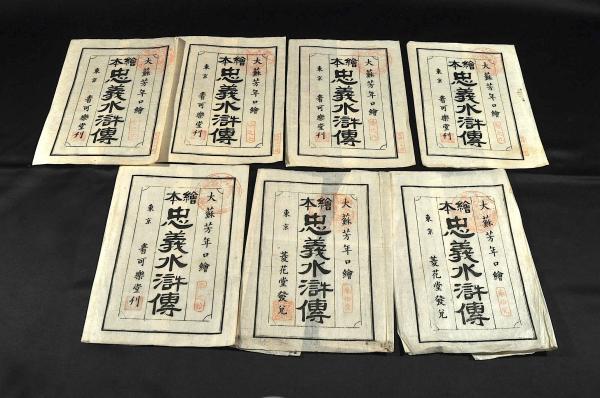 大蘇芳年口繪
繪本
忠義水滸傳
東京 可樂堂刊
大蘇芳年口繪
繪本
忠義水滸傳
東京 可樂堂刊
大蘇芳年口繪
繪本
忠義水滸傳
東京 可樂堂刊
大蘇芳年口繪
繪本
忠義水滸傳
東京 可樂堂刊
大蘇芳年口繪
繪本
忠義水滸傳
東京 可樂堂刊
大蘇芳年口繪
繪本
忠義水滸傳
東京 菱花堂發兌
大蘇芳年口繪
繪本
忠義水滸傳
東京 菱花堂發兌